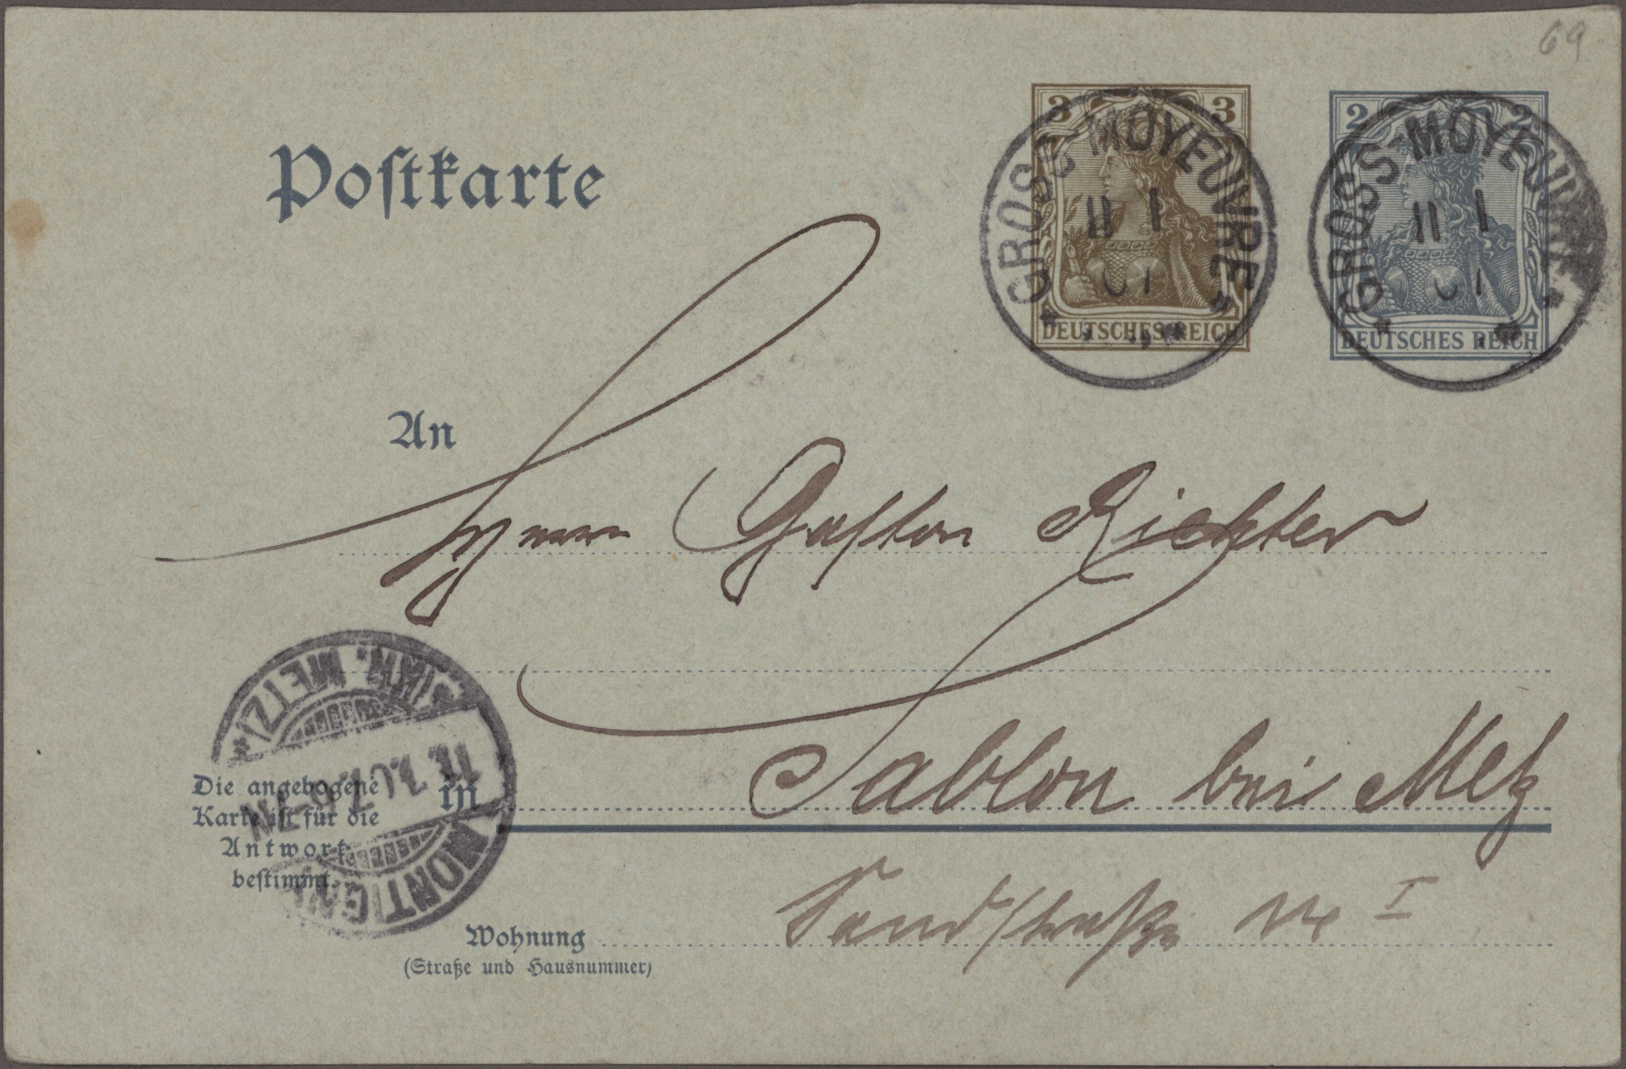 69
3 3
DEUTSCHES REICH
2 2
DEUTSCHES REICH
GROSS-MOYEUVRE
11 1
01
GROSS-MOYEUVRE
11 1
01
Postkarte
An
Herrn Gaston Richter
in Sablon bei Metz
Sandstraße No I
Die angebogene
Karte ist für die
Antwort
bestimmt.
Wohnung
(Straße und Hausnummer)
MONTIGNY
(KR. METZ)
11.1.01.